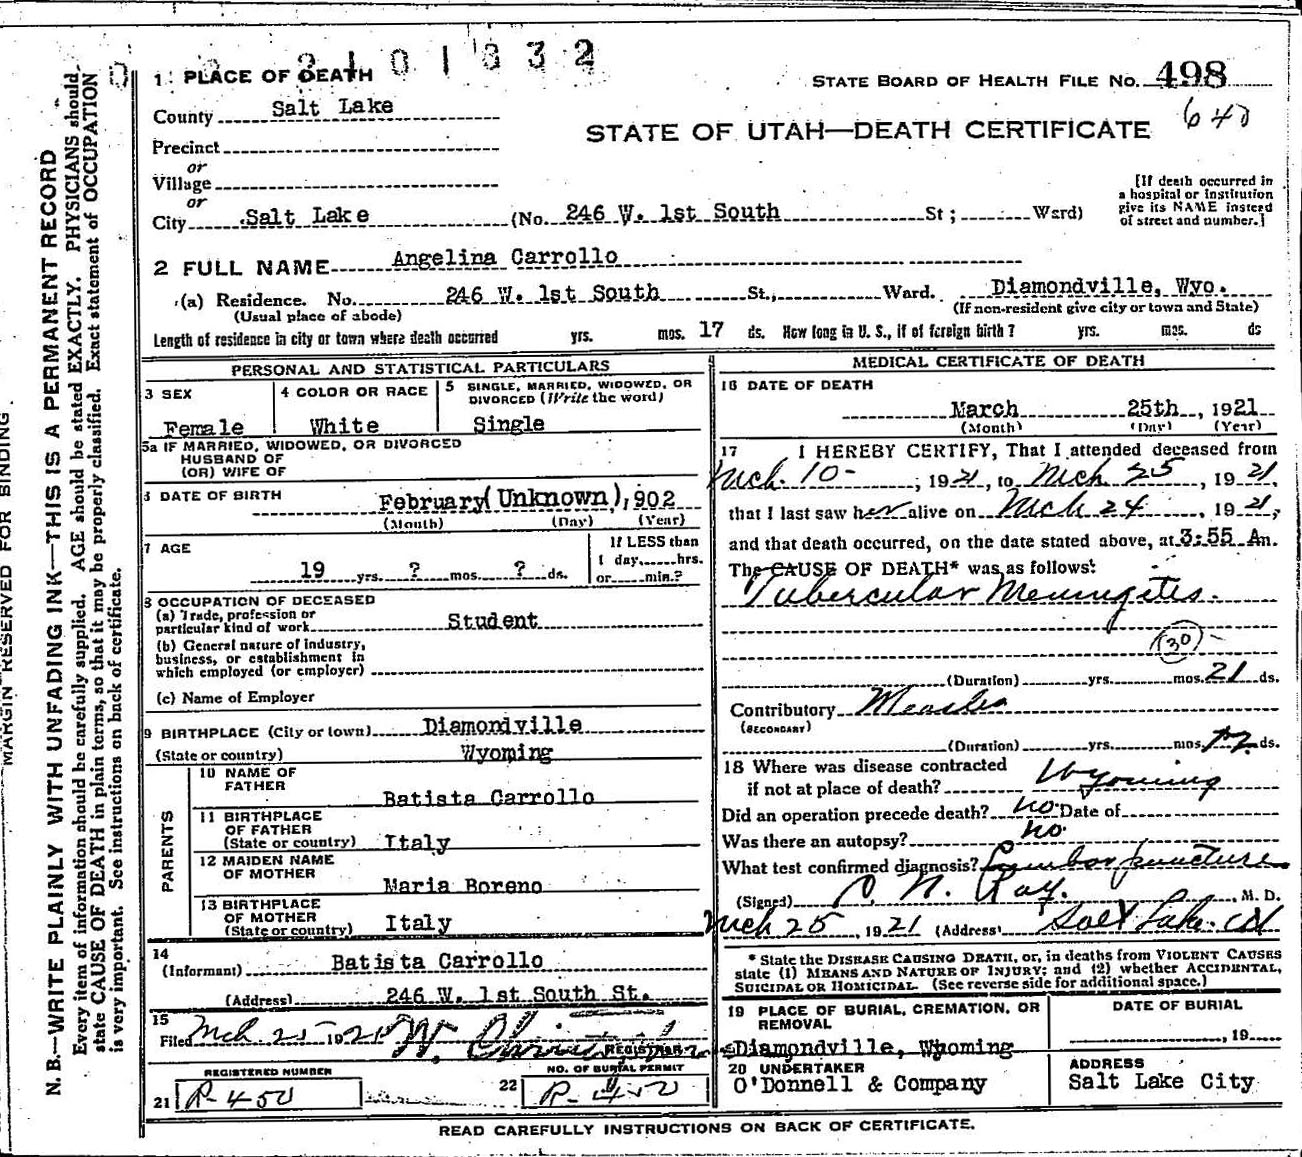 2101832
1 PLACE OF DEATH
STATE BOARD OF HEALTH FILE NO. 498
640
County Salt Lake
STATE OF UTAH—DEATH CERTIFICATE
Precinct
or
Village
or
City Salt Lake (No. 246 W. 1st South St; Ward)
[If death occurred in
a hospital or institution
give its NAME instead
of street and number.]
2 FULL NAME Angelina Carrollo
(a) Residence. No. 246 W. 1st South St., Ward. Diamondville, Wyo.
(Usual place of abode) (If non-resident give city or town and State)
Length of residence in city or town where death occurred yrs. mos. 17 ds. How long in U. S., if of foreign birth? yrs. mos. ds
PERSONAL AND STATISTICAL PARTICULARS
3 SEX
Female
4 COLOR OR RACE
White
5 SINGLE, MARRIED, WIDOWED, OR
DIVORCED (Write the word)
Single
5a IF MARRIED, WIDOWED, OR DIVORCED
HUSBAND OF
(OR) WIFE OF
6 DATE OF BIRTH
February (Unknown), 902
(Month) (Day) (Year)
7 AGE
19 yrs. ? mos. ? ds.
If LESS than
1 day, hrs.
or min.?
8 OCCUPATION OF DECEASED
(a) Trade, profession or
particular kind of work Student
(b) General nature of industry,
business, or establishment in
which employed (or employer)
(c) Name of Employer
9 BIRTHPLACE (City or town) Diamondville
(State or country) Wyoming
PARENTS
10 NAME OF
FATHER
Batista Carrollo
11 BIRTHPLACE
OF FATHER
(State or country) Italy
12 MAIDEN NAME
OF MOTHER
Maria Boreno
13 BIRTHPLACE
OF MOTHER
(State or country) Italy
14
(Informant) Batista Carrollo
(Address) 246 W. 1st South St.
15
Filed Mch 25 1921 W.
REGISTRAR
REGISTERED NUMBER
21 R-450
NO. OF BURIAL PERMIT
22 R-450
MEDICAL CERTIFICATE OF DEATH
16 DATE OF DEATH
March 25th, 1921
(Month) (Day) (Year)
17 I HEREBY CERTIFY, That I attended deceased from
Mch. 10-, 1921, to Mch 25, 1921,
that I last saw her alive on Mch 24, 1921,
and that death occurred, on the date stated above, at 3:55 Am.
The CAUSE OF DEATH* was as follows:
Tubercular Meningites.
(30)-
(Duration) yrs. mos. 21 ds.
Contributory Measles
(SECONDARY)
(Duration) yrs. mos. ds.
18 Where was disease contracted
if not at place of death? Wyoming
Did an operation precede death? no. Date of
Was there an autopsy? no.
What test confirmed diagnosis? Lumbar puncture
(Signed) N. Ray. M. D.
Mch 25, 1921 (Address) Salt Lake
* State the DISEASE CAUSING DEATH, or, in deaths from VIOLENT CAUSES
state (1) MEANS AND NATURE OF INJURY; and (2) whether ACCIDENTAL,
SUICIDAL OR HOMICIDAL. (See reverse side for additional space.)
19 PLACE OF BURIAL, CREMATION, OR
REMOVAL
Diamondville, Wyoming
DATE OF BURIAL
, 19
20 UNDERTAKER
O'Donnell & Company
ADDRESS
Salt Lake City
READ CAREFULLY INSTRUCTIONS ON BACK OF CERTIFICATE.
MARGIN RESERVED FOR BINDING.
N. B.—WRITE PLAINLY WITH UNFADING INK—THIS IS A PERMANENT RECORD
Every item of information should be carefully supplied. AGE should be stated EXACTLY. PHYSICIANS should
state CAUSE OF DEATH in plain terms, so that it may be properly classified. Exact statement of OCCUPATION
is very important. See instructions on back of certificate.